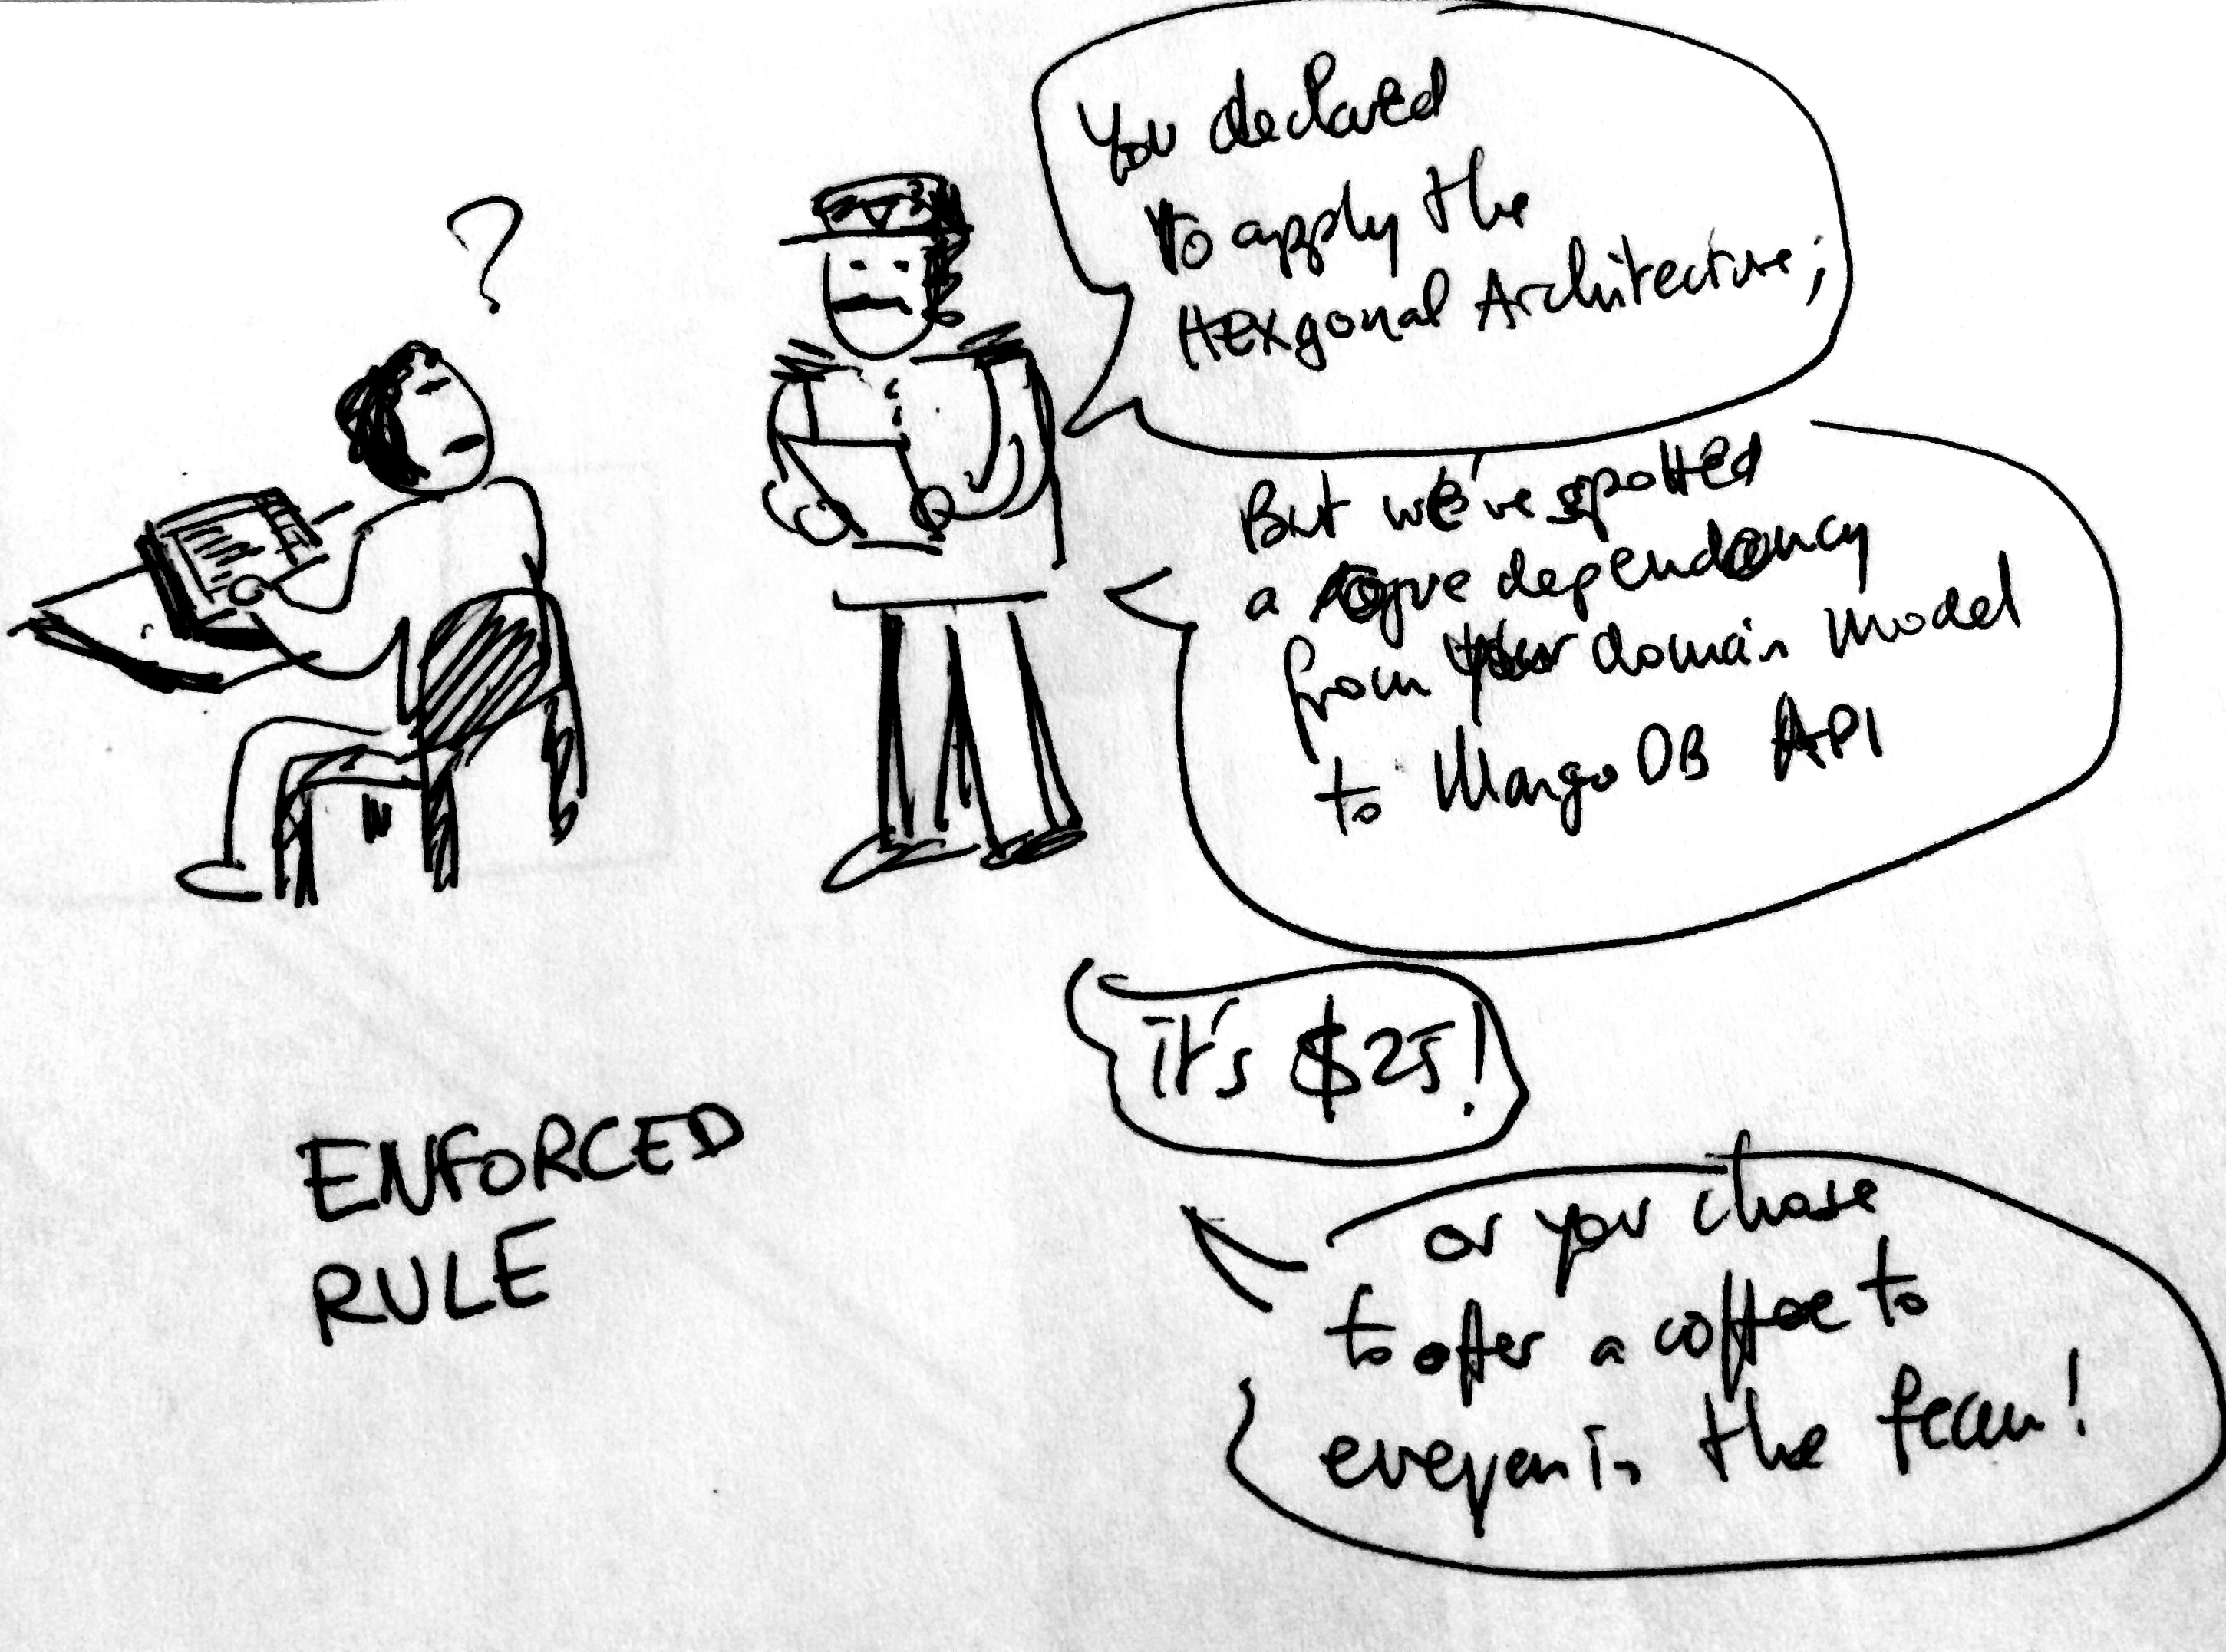 ?
You declared
to apply the
Hexgonal Architecture;
But we've spotted
a rogue dependency
from your domain model
to MangoDB API
it's $25!
or you chose
to offer a coffee to
everyen in the team!
ENFORCED
RULE